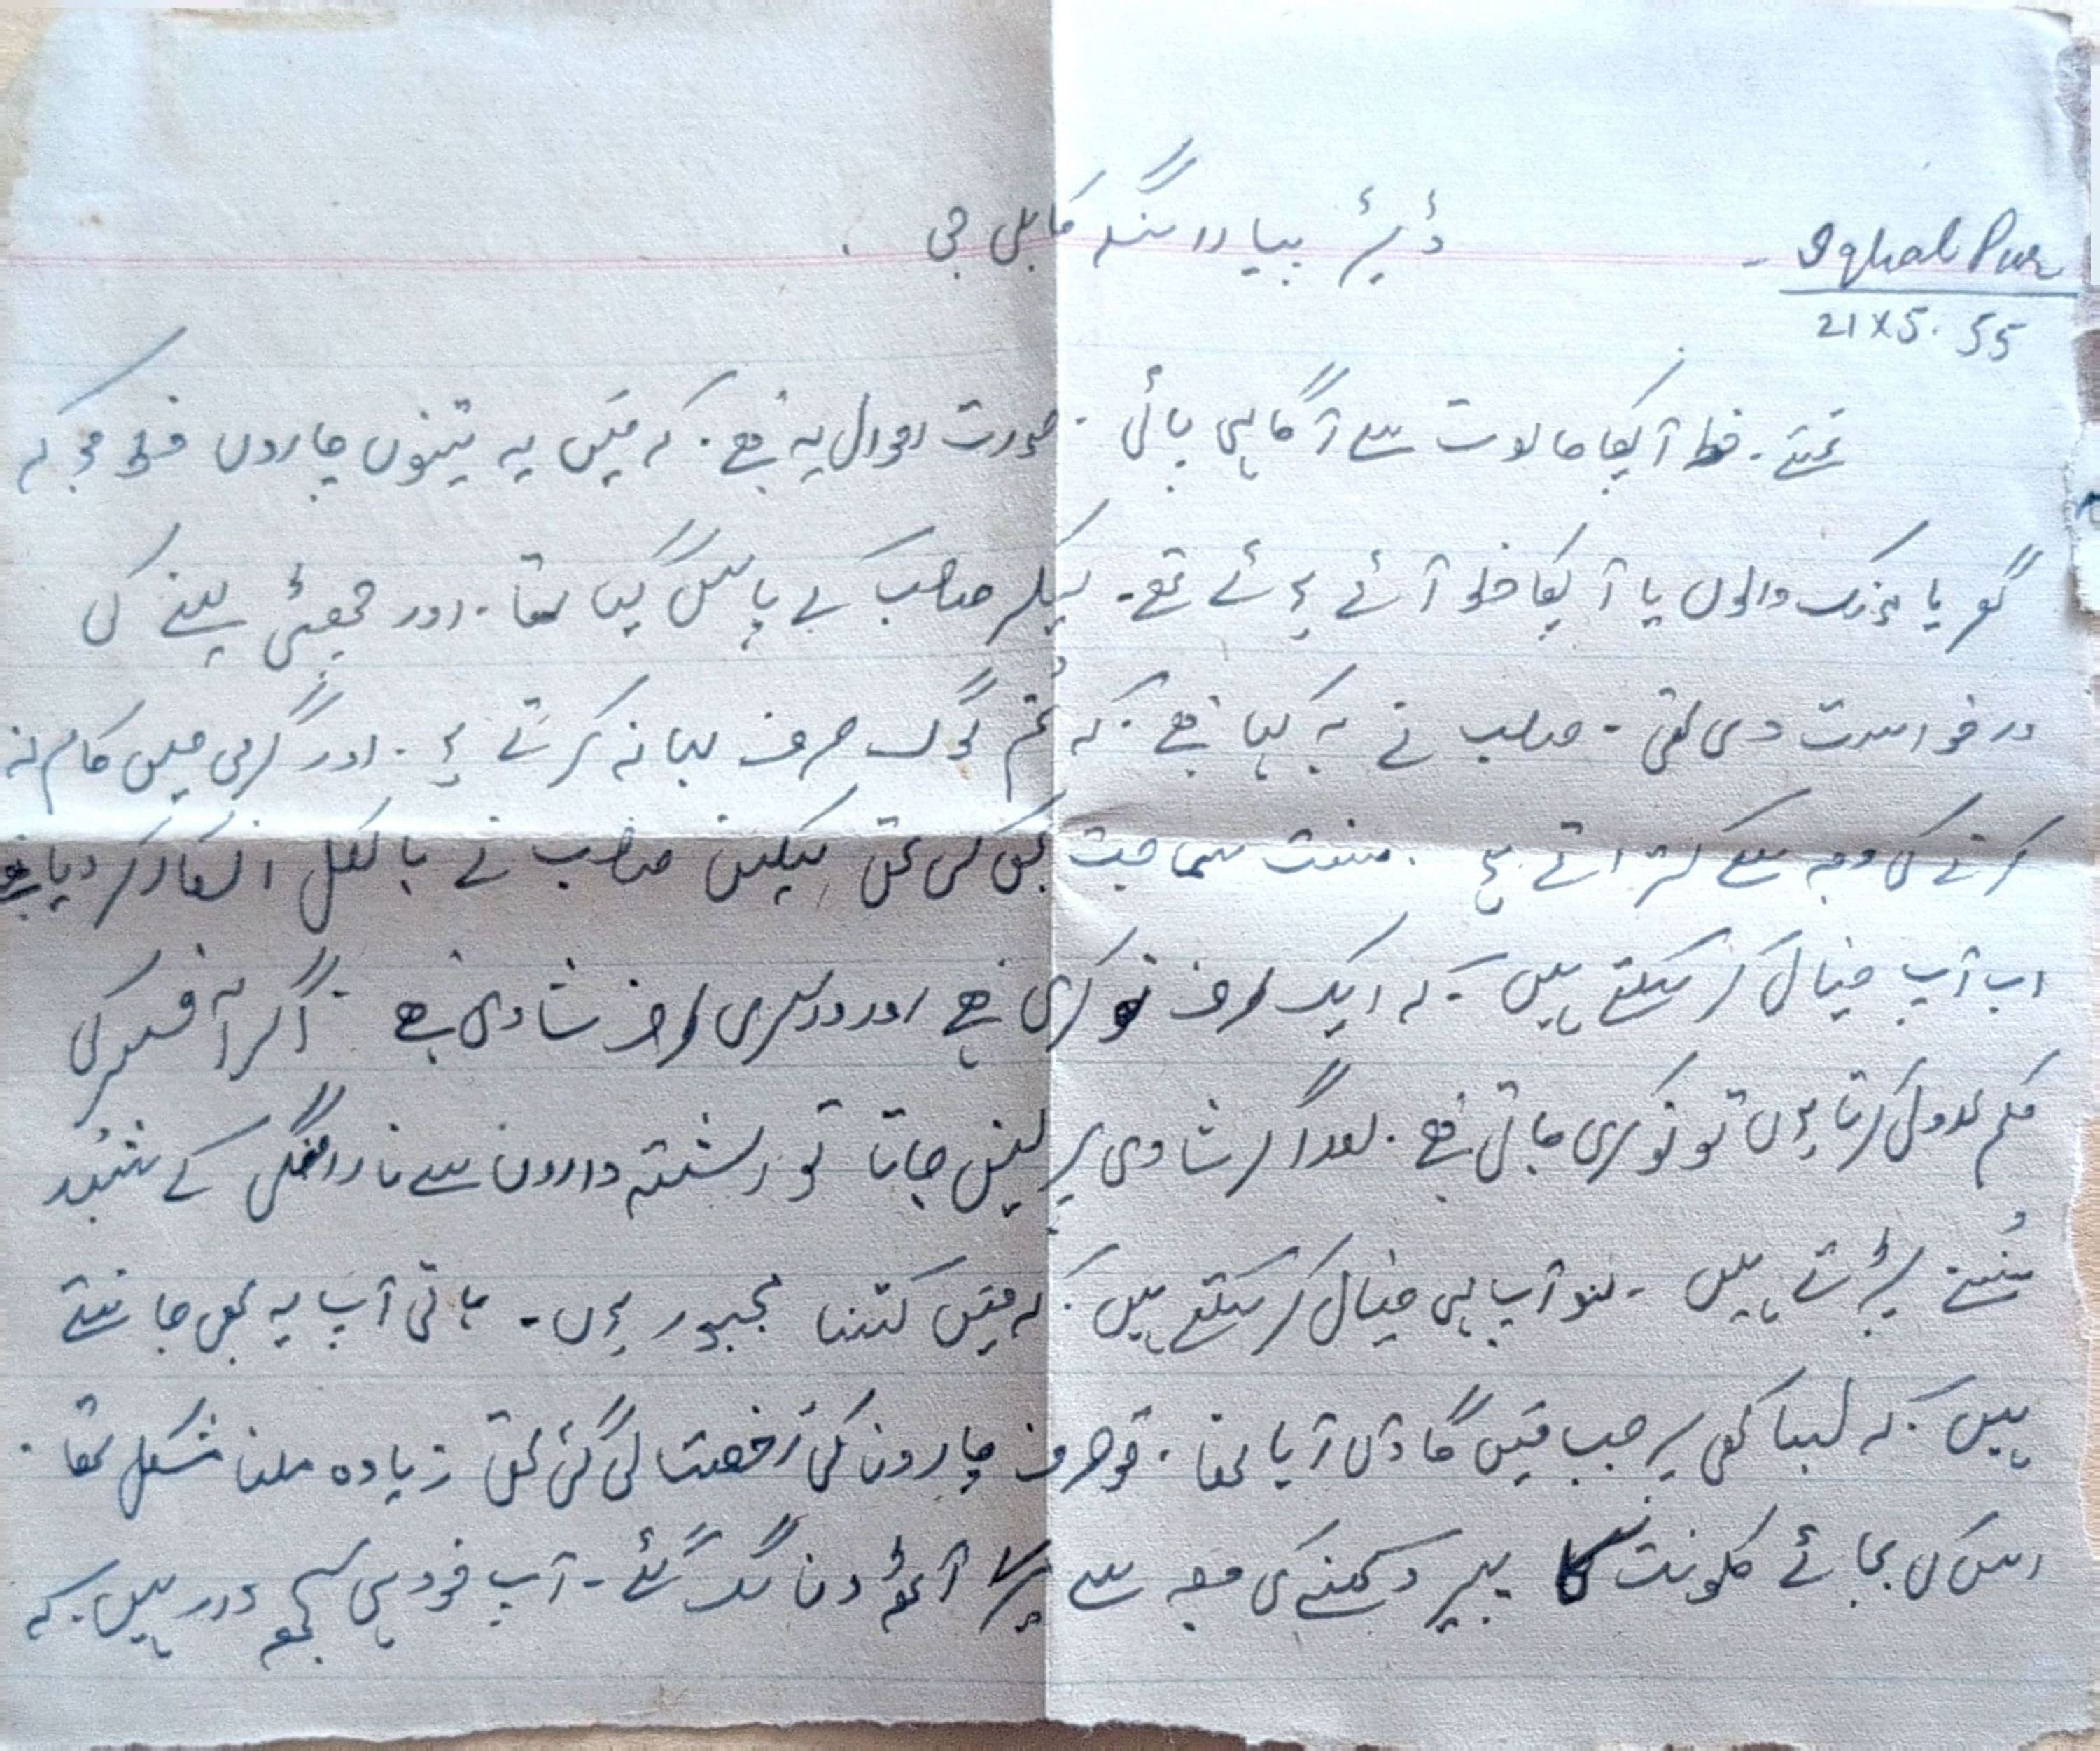 Iqbal Pur -
21x5.55
ڈیئر پیارا سنگھ کابلی جی .
نمستے۔ خط آپکا حالات سے آگاہی پائی . صورت احوال یہ ہے . کہ مَیں یہ تینوں چاروں خط جو کہ
گھر یا والوں یا آپکا خط آئے ہوئے تھے۔ صاحب کے پاس گیا تھا . اور چھٹی لینے کی
درخواست دی تھی - صاحب نے یہ کہا ہے . کہ تُم لوگ صرف بہانہ کرتے ہو . اور گرمی میں کام نہ
کرنے کی وجہ سے کتراتے ہو . منت سماجت بھی کی تھی لیکن صاحب نے بالکل انکار کر دیا ہے
اب آپ خیال کر سکتے ہیں . کہ ایک طرف نوکری ہے اور دوسری طرف شادی ہے . اگر آفیسر کی
حکم عدولی کرتا ہوں تو نوکری جاتی ہے . اگر شادی پر نہیں جاتا تو رشتہ داروں سے ناراضگی کے شبد
سُننے پڑتے ہیں . آپ ہی خیال کر سکتے ہیں . کہ مَیں کتنا مجبور ہوں . باقی آپ یہ بھی جانتے
ہیں . کہ پر جب مَیں گاؤں آیا تھا . تو صرف چاروں کی رخصت لی گئی تھی زیادہ ملنا مشکل تھا .
اس کی بجائے کلونت کا پیپر دیکھنے کی وجہ سے آٹھ دن لگ گئے - آپ خود ہی سمجھ دار ہیں . کہ